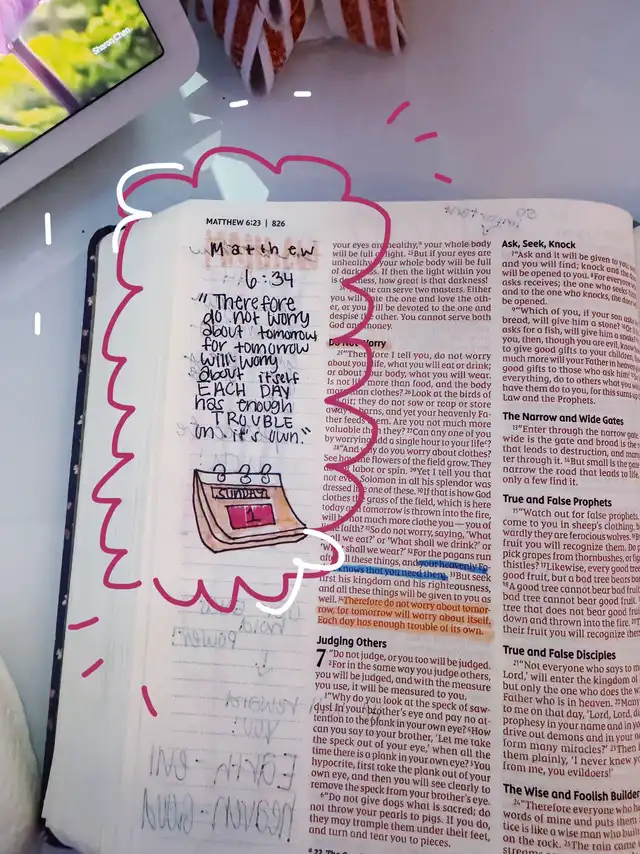 Sharon Chen
MATTHEW 6:23 | 826
Matthew
6:34
"Therefore
do not worry
about tomorrow,
for tomorrow
will worry
about itself
EACH DAY
has enough
TROUBLE
on it's own."
SUNDAY
1
your eyes are healthy, your whole body
will be full of light. 23But if your eyes are
unhealthy, your whole body will be full
of darkness. If then the light within you
is darkness, how great is that darkness!
one can serve two masters. Either
you will hate the one and love the oth-
er, or you will be devoted to the one and
despise the other. You cannot serve both
God and money.
Do Not Worry
25"Therefore I tell you, do not worry
about your life, what you will eat or drink;
or about your body, what you will wear.
Is not life more than food, and the body
more than clothes? 26Look at the birds of
the air; they do not sow or reap or store
away in barns, and yet your heavenly Fa-
ther feeds them. Are you not much more
valuable than they? 27Can any one of you
by worrying add a single hour to your life?
28"And why do you worry about clothes?
See how the flowers of the field grow. They
do not labor or spin. 29Yet I tell you that
not even Solomon in all his splendor was
dressed like one of these. 30If that is how God
clothes the grass of the field, which is here
today and tomorrow is thrown into the fire,
will he not much more clothe you—you of
little faith? 31So do not worry, saying, 'What
shall we eat?' or 'What shall we drink?' or
'What shall we wear?' 32For the pagans run
after all these things, and your heavenly Fa-
ther knows that you need them. 33But seek
first his kingdom and his righteousness,
and all these things will be given to you as
well. 34Therefore do not worry about tomor-
row, for tomorrow will worry about itself.
Each day has enough trouble of its own.
Judging Others
7 "Do not judge, or you too will be judged.
2For in the same way you judge others,
you will be judged, and with the measure
you use, it will be measured to you.
3"Why do you look at the speck of saw-
dust in your brother's eye and pay no at-
tention to the plank in your own eye? 4How
can you say to your brother, 'Let me take
the speck out of your eye,' when all the
time there is a plank in your own eye? 5You
hypocrite, first take the plank out of your
own eye, and then you will see clearly to
remove the speck from your brother's eye.
6"Do not give dogs what is sacred; do
not throw your pearls to pigs. If you do,
they may trample them under their feet,
and turn and tear you to pieces.
Ask, Seek, Knock
7"Ask and it will be given to you
and you will find; knock and the
will be opened to you. 8For everyone
asks receives; the one who seeks
and to the one who knocks, the door
be opened.
9"Which of you, if your son asks
bread, will give him a stone? 10Or
asks for a fish, will give him a snake?
you, then, though you are evil, know
to give good gifts to your children,
much more will your Father in heaven
give good gifts to those who ask him!
everything, do to others what you
have them do to you, for this sums up
Law and the Prophets.
The Narrow and Wide Gates
13"Enter through the narrow gate
wide is the gate and broad is the
that leads to destruction, and many
ter through it. 14But small is the gate
narrow the road that leads to life,
only a few find it.
True and False Prophets
15"Watch out for false prophets.
come to you in sheep's clothing,
wardly they are ferocious wolves. 16By
fruit you will recognize them. Do
pick grapes from thornbushes, or figs
thistles? 17Likewise, every good tree
good fruit, but a bad tree bears bad
18A good tree cannot bear bad fruit,
bad tree cannot bear good fruit.
tree that does not bear good fruit
down and thrown into the fire. 20Thus
their fruit you will recognize them.
True and False Disciples
21"Not everyone who says to me,
Lord,' will enter the kingdom of
but only the one who does the will
Father who is in heaven. 22Many
to me on that day, 'Lord, Lord, did
prophesy in your name and in your
drive out demons and in your name
form many miracles?' 23Then I
them plainly, 'I never knew you.
from me, you evildoers!'
The Wise and Foolish Builders
24"Therefore everyone who hears
words of mine and puts them
tice is like a wise man who built
on the rock. 25The rain came